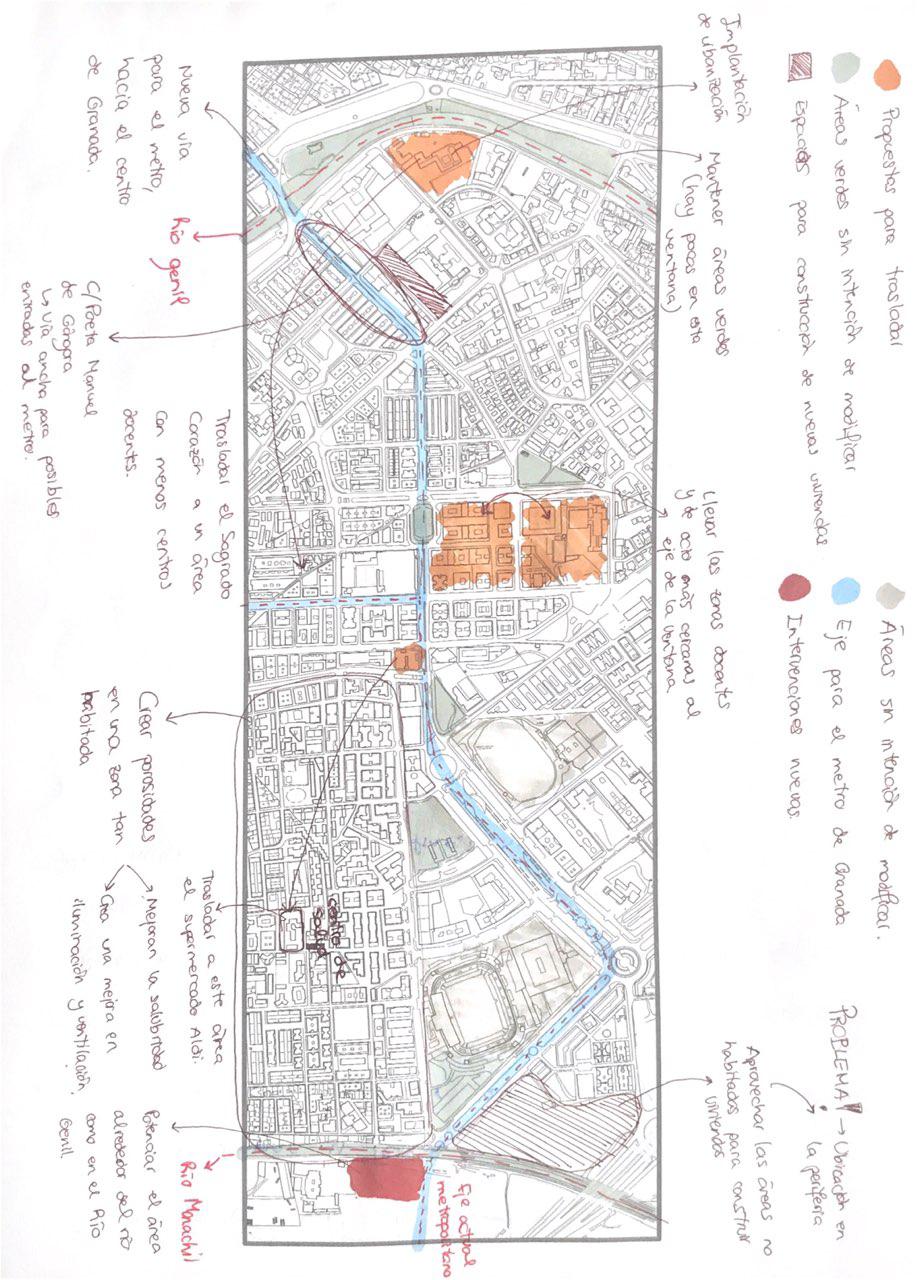 Propuestas para trasladar
Áreas verdes sin intención de modificar
Espacios para construcción de nuevas viviendas
Áreas sin intención de modificar.
Eje para el metro de Granada
Intervenciones nuevas.
PROBLEMA → Ubicación en
la periferia
Aprovechar las áreas no
habitadas para construir
viviendas
Implantación
de urbanización
Mantener áreas verdes
(hay pocas en esta
ventana)
Llevar las zonas docentes
y de ocio más cercanas al
eje de la ventana
Nueva vía
para el metro,
hacia el centro
de Granada.
Río genil
C/Poeta Manuel
de Góngora
↳ vía ancha para posibles
entradas al metro.
Trasladar el Sagrado
Corazón a un área
con menos centros
docentes.
Crear porosidades
en una zona tan
habitada
Mejoran la salubridad
Crea una mejora en
iluminación y ventilación.
centro de
salud
Trasladar a este área
el supermercado Aldi.
Potenciar el área
alrededor del río
como en el Río
Genil
Río Monachil
Eje actual
metropolitano